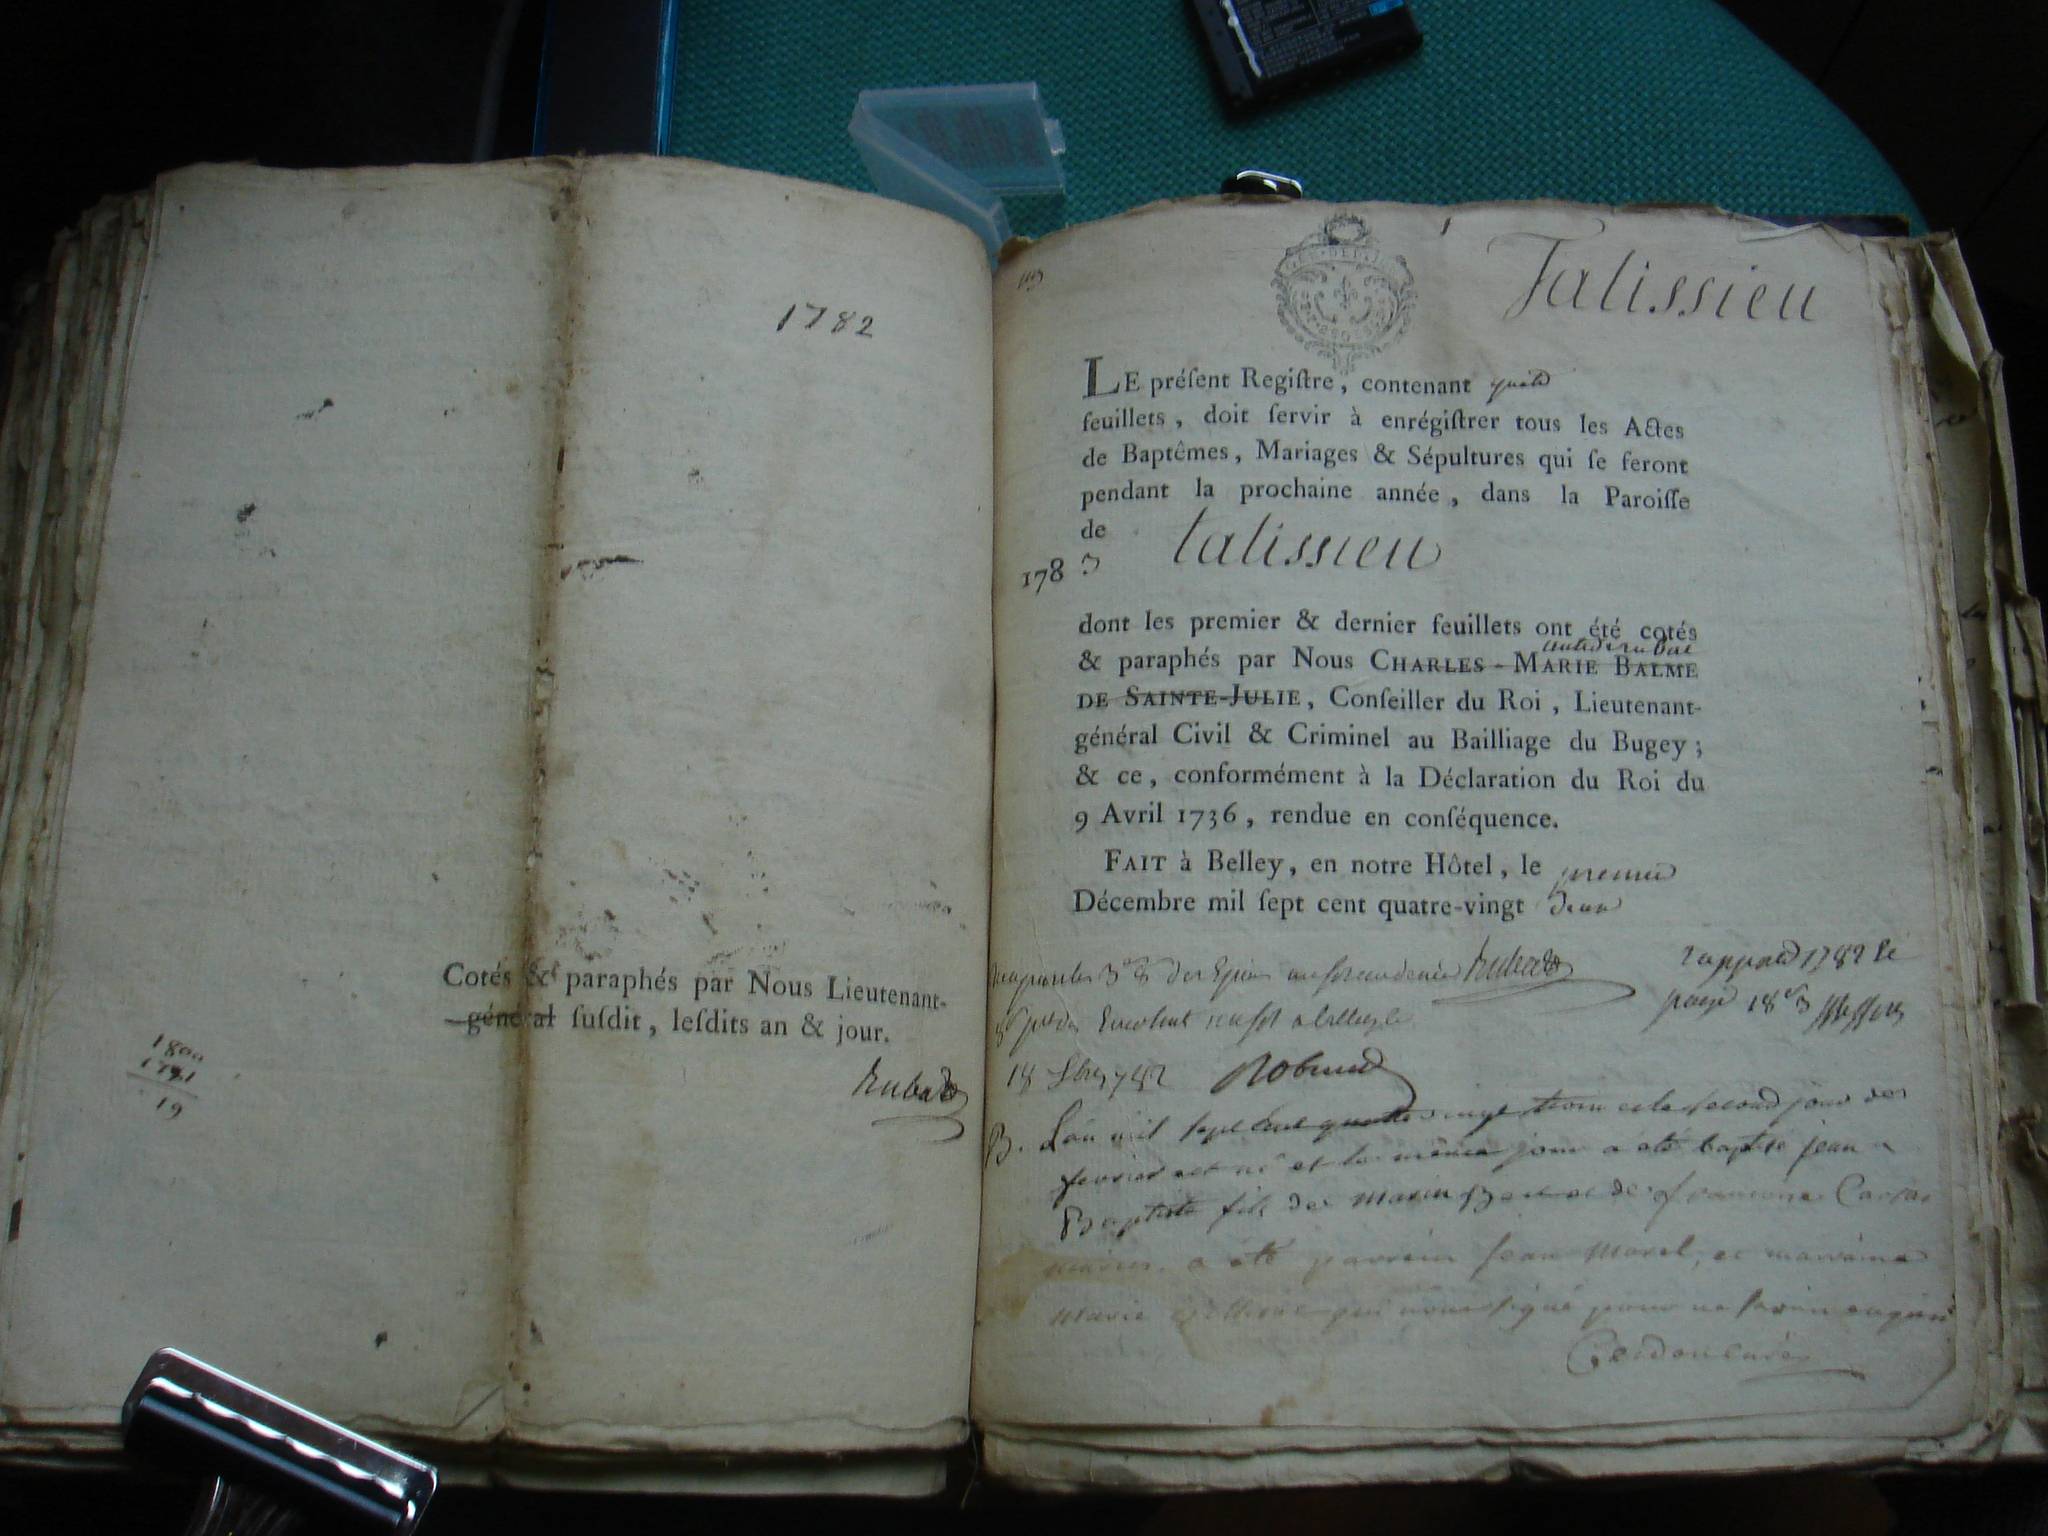 1782
Cotés & paraphés par Nous Lieutenant-
général susdit, lesdits an & jour.
1800
1781
19
Talissieu
LE préſent Regiſtre, contenant quatre
feuillets, doit ſervir à enrégiſtrer tous les Actes
de Baptêmes, Mariages & Sépultures qui ſe feront
pendant la prochaine année, dans la Paroiſſe
de talissieu
1783
dont les premier & dernier feuillets ont été cotés
& paraphés par Nous CHARLES-MARIE BALME
DE SAINTE-JULIE, Conſeiller du Roi, Lieutenant-
général Civil & Criminel au Bailliage du Bugey;
& ce, conformément à la Déclaration du Roi du
9 Avril 1736, rendue en conſéquence.
FAIT à Belley, en notre Hôtel, le premier
Décembre mil ſept cent quatre-vingt deux
B. L'an mil sept cent quatre vingt trois et le second jour de
fevrier est né et le même jour a été baptisé jean
Baptiste fils de marin et de francoise
a été parrein jean morel, et marraine
marie qui n'ont signé pour ne savoir